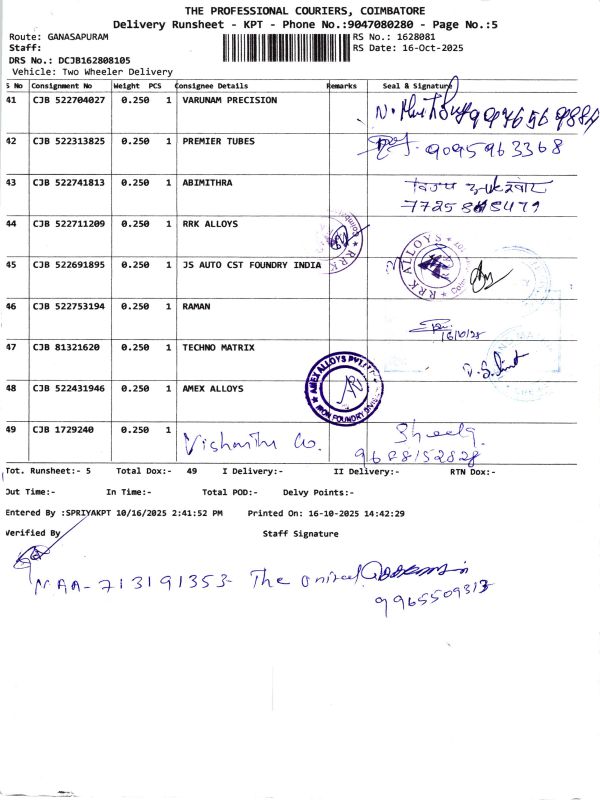 THE PROFESSIONAL COURIERS, COIMBATORE
Delivery Runsheet - KPT - Phone No.:9047080280 - Page No.:5
Route: GANASAPURAM RS No.: 1628081
Staff: RS Date: 16-Oct-2025
DRS No.: DCJB162808105
Vehicle: Two Wheeler Delivery
S No Consignment No Weight PCS Consignee Details Remarks Seal & Signature
41 CJB 522704027 0.250 1 VARUNAM PRECISION
42 CJB 522313825 0.250 1 PREMIER TUBES 9095963368
43 CJB 522741813 0.250 1 ABIMITHRA
44 CJB 522711209 0.250 1 RRK ALLOYS
RRK ALLOYS
45 CJB 522691895 0.250 1 JS AUTO CST FOUNDRY INDIA
46 CJB 522753194 0.250 1 RAMAN
16/10/25
47 CJB 81321620 0.250 1 TECHNO MATRIX
AMEX ALLOYS PVT LTD
IRON FOUNDRY DIVISION
48 CJB 522431946 0.250 1 AMEX ALLOYS
49 CJB 1729240 0.250 1
9688152828
Tot. Runsheet:- 5 Total Dox:- 49 I Delivery:- II Delivery:- RTN Dox:-
Out Time:- In Time:- Total POD:- Delvy Points:-
Entered By :SPRIYAKPT 10/16/2025 2:41:52 PM Printed On: 16-10-2025 14:42:29
Verified By Staff Signature
MAA-713191353 The
9965509313